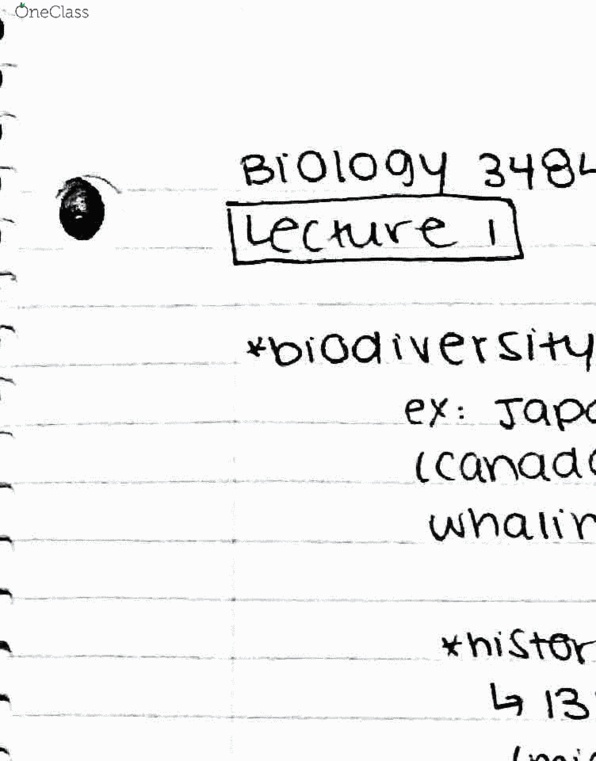 OneClass
Biology 3484
Lecture 1
*biodiversity
ex: Japa
(canada
whalin
*histor
↳ 13